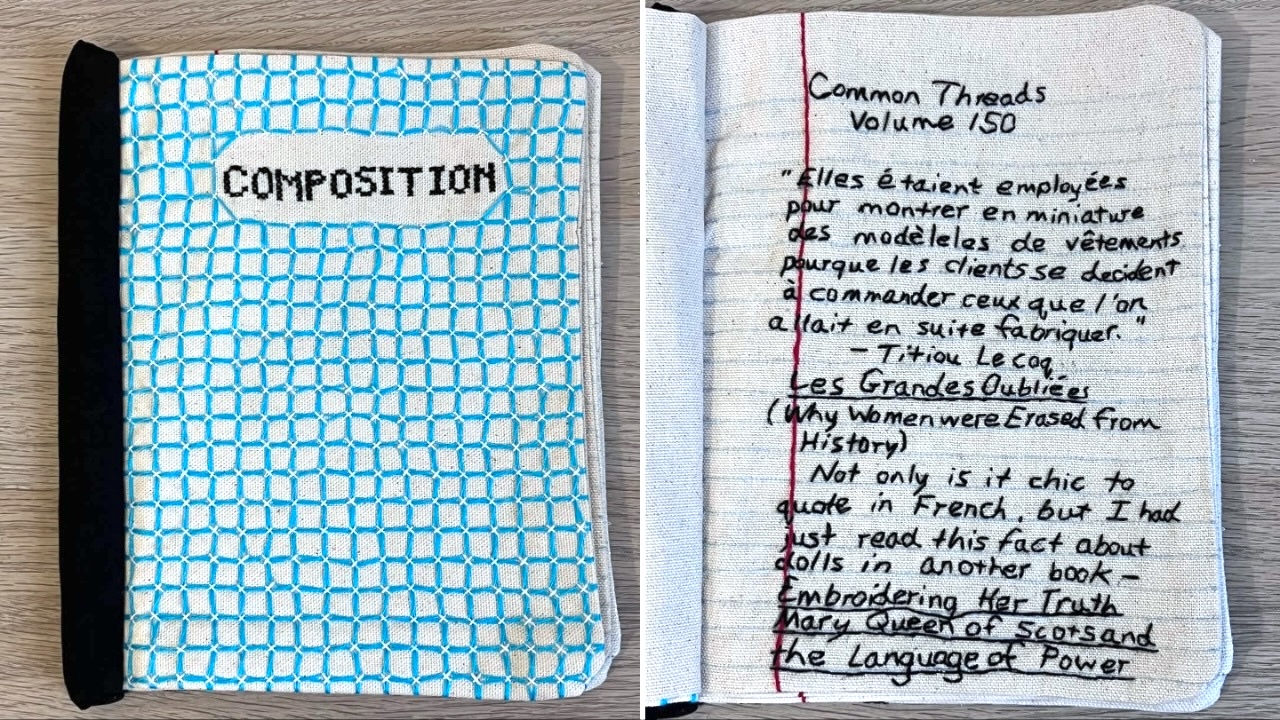 COMPOSITION
Common Threads
Volume 150
"Elles étaient employées
pour montrer en miniature
des modèleles de vêtements
pourque les clients se decident
à commander ceux que l'on
allait en suite fabriquer."
- Titiou Le coq,
Les Grandes Oubliées
(Why Women were Erased from
History)
Not only is it chic to
quote in French, but I had
just read this fact about
dolls in another book -
Embroidering Her Truth
Mary Queen of Scots and
the Language of Power